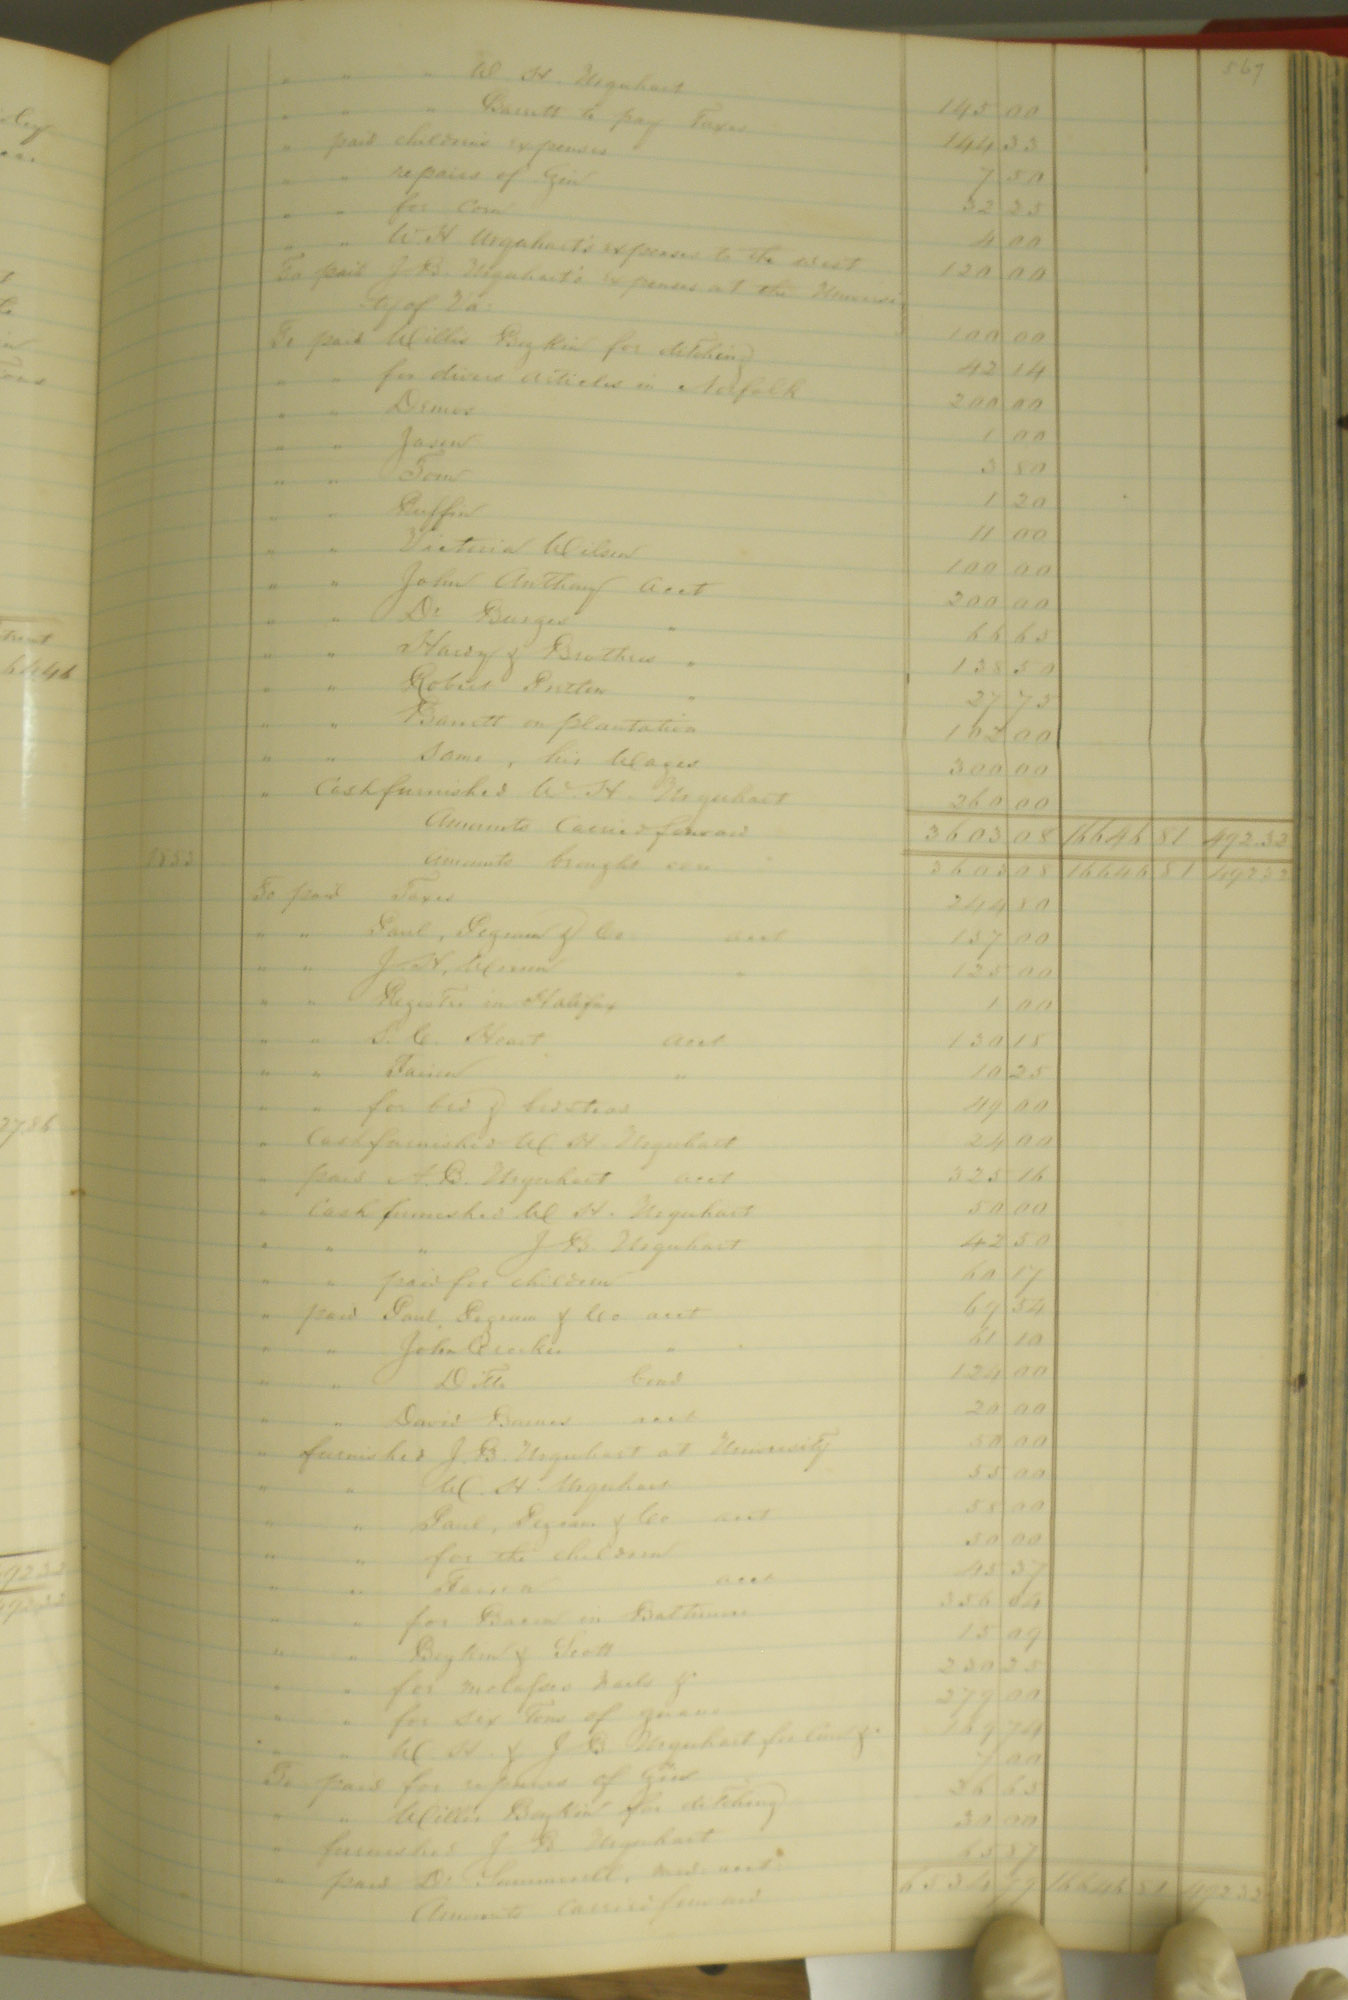 567
" " " W. H. Urquhart 145 00
" " " Barrett to pay Taxes 144 33
" paid children's expenses 7 50
" " repairs of Gin 32 35
" " for Corn 4 00
" " W. H Urquhart's expenses to the west 120 00
To paid J. B. Urquhart's expenses at the Universi
ty of Va: 100 00
To paid Willis Boykin for ditching 42 14
" " for divers articles in Norfolk 200 00
" " Dremos 1 00
" " Jason 3 80
" " Tom 1 20
" " Ruffin 11 00
" " Victoria Wilson 100 00
" " John Anthony acct 200 00
" " Dr Burges " 66 63
" " Hardy & Brothers " 138 50
" " Robert " 27 75
" " Barrett on plantation 102 00
" " Same, his Wages 300 00
" Cash furnished W. H. Urquhart 260 00
Amounts Carried forward 3603 08 16646 81 492 32
1853 Amounts brought over 3603 08 16646 81 492 32
To paid Taxes 244 80
" " Paul, Pegram & Co acct 137 00
" " J. H. " 125 00
" " Register in Halifax 1 00
" " S. C. Heart acct 130 18
" " " 10 25
" " for bed & bedstead 49 00
" Cash furnished W. H. Urquhart 24 00
" paid A. B. Urquhart acct 325 16
" Cash furnished W. H. Urquhart 50 00
" " " J. B. Urquhart 42 50
" " paid for children 60 17
" paid Paul, Pegram & Co acct 69 54
" " John Crocker " 61 10
" " Ditto bond 124 00
" " David Barnes acct 20 00
" furnished J. B. Urquhart at University 50 00
" " W. H. Urquhart 55 00
" " Paul, Pegram & Co acct 58 00
" " for the children 50 00
" " acct 45 37
" " for Bacon in Baltimore 356 04
" " Boykin & Scott 15 09
" " for molasses Nails & 230 25
" " for six Tons of guano 279 00
" " W. H. & J B Urquhart for &. 169 74
To paid for repairs of Gin 7 00
" " Willis Boykin for ditching 36 63
" furnished J. B Urquhart 30 00
" paid Dr , med: acct: 63 37
Amounts Carried forward 16646 81 492 32